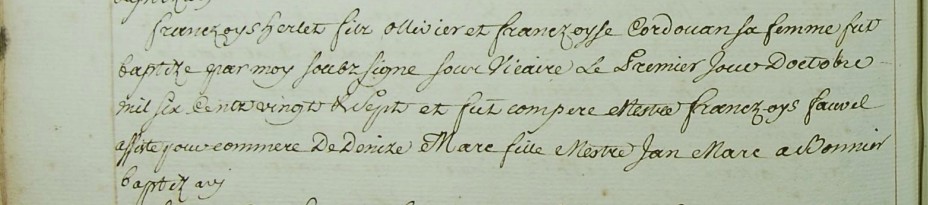 franczoys herlet filz ollivier et franczoyse Cordouan sa femme fut
baptize par moy soubz signe soub Vicaire Le Premier Jour Doctobre
mil six Centz vingtz & sept et fut compere Mestre franczoys fauvel
assiste pour commere De Denize Marc fille Mestre Jan Marc
baptize